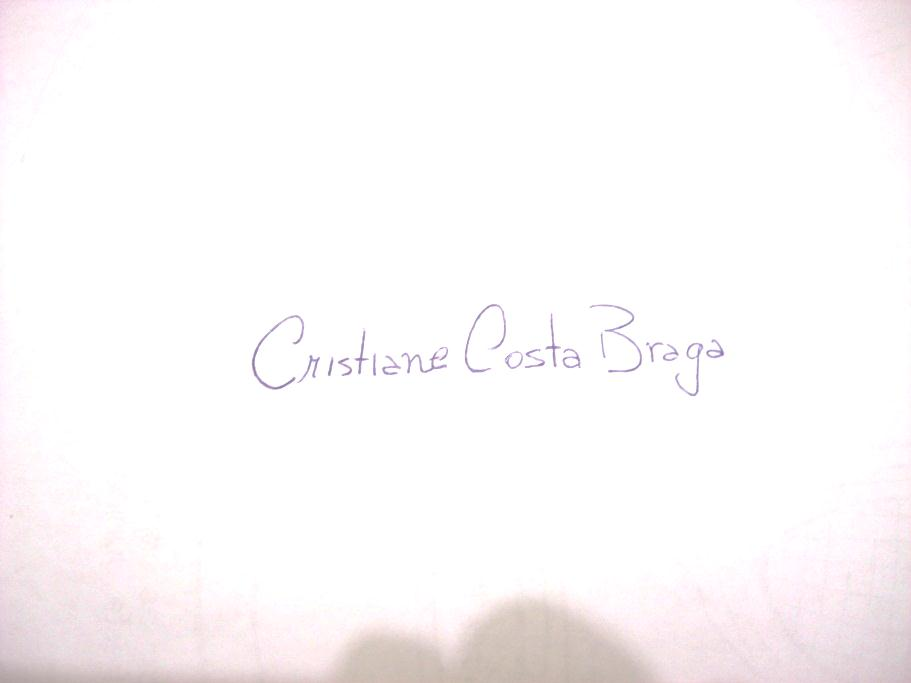 Cristiane Costa Braga